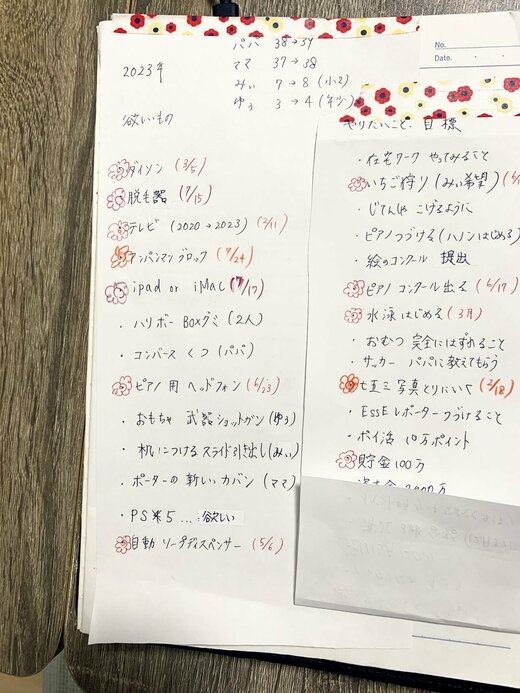 No.
Date. ・ ・
2023年
パパ 38→39
ママ 37→38
みぃ 7→8 (小2)
ゆぅ 3→4 (年少)
欲いもの
ダイソン (3/5)
脱毛器 (7/15)
テレビ (2020→2023) (2/11)
アンパンマンブロック (7/24)
ipad or iMac (/17)
・ハリボーBOXグミ (2人)
・コンバース くつ (パパ)
ピアノ用ヘッドフォン (6/23)
・おもちゃ 武器ショットガン (ゆぅ)
・机につけるスライド引き出し (みぃ)
・ポーターの新しいカバン (ママ)
・PS 5 ...欲しい
自動 ソープディスペンサー (5/6)
やりたいこと・目標
・在宅ワーク やってみること
いちご狩り (みぃ希望)
・じてんしゃ こげるように
・ピアノつづける (ハノンはじめる)
・絵のコンクール 提出
ピアノ コンクール出る (6/17)
水泳はじめる (3月)
・おむつ 完全にはずれること
・サッカー パパに教えてもらう
七五三 写真とりにいく (2/18)
・ESSEレポーターつづけること
・ポイ活 10万ポイント
貯金100万